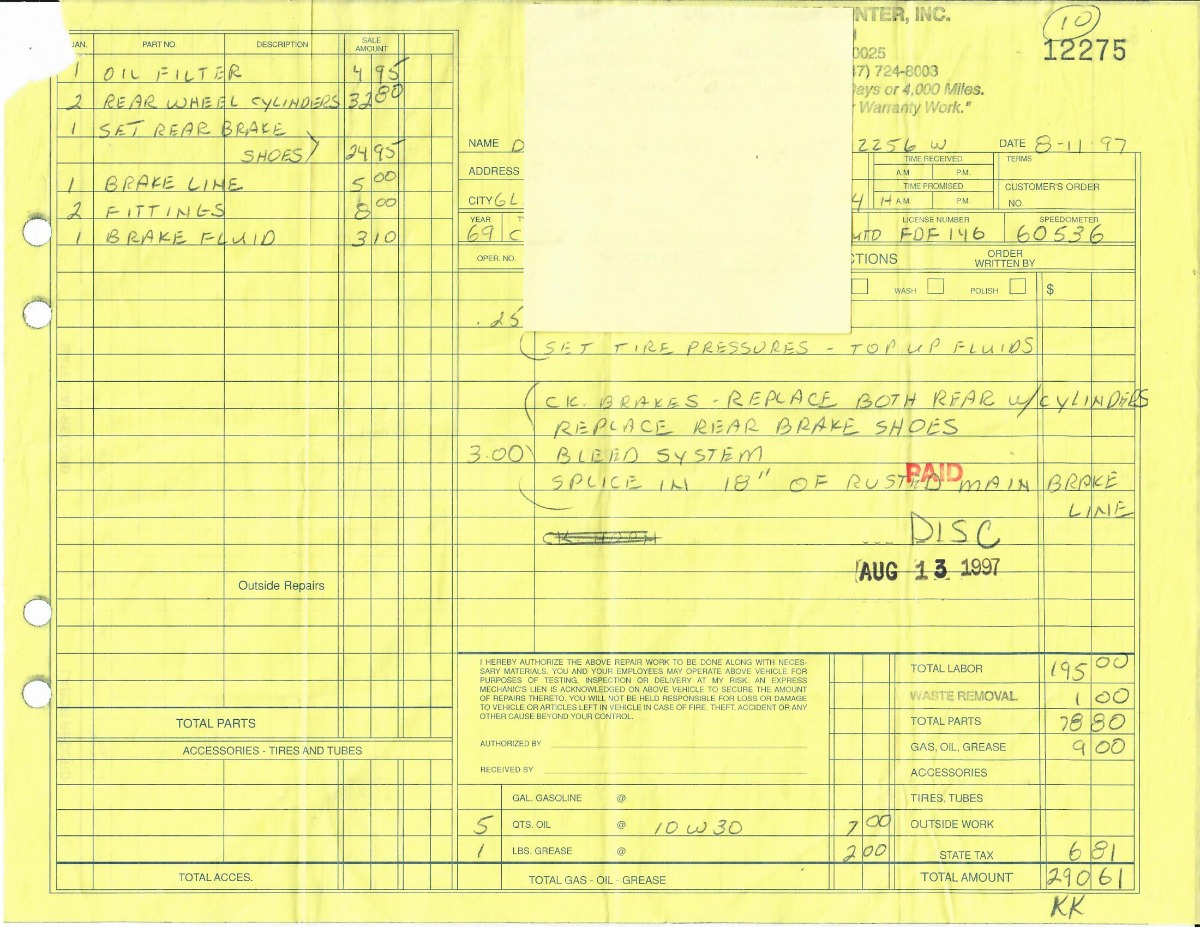 NTER, INC.
10
12275
0025
7) 724-8003
Days or 4,000 Miles.
Warranty Work."
QUAN. PART NO. DESCRIPTION SALE AMOUNT
1 OIL FILTER 4 95
2 REAR WHEEL CYLINDERS 32 80
1 SET REAR BRAKE
SHOES) 24 95
1 BRAKE LINE 5 00
2 FITTINGS 8 00
1 BRAKE FLUID 3 10
Outside Repairs
TOTAL PARTS
ACCESSORIES - TIRES AND TUBES
TOTAL ACCES.
NAME D 2256 W DATE 8-11-97
ADDRESS TIME RECEIVED A.M. P.M. TERMS
CITY GL 4 TIME PROMISED A.M. P.M. CUSTOMER'S ORDER NO.
YEAR LICENSE NUMBER SPEEDOMETER
69 C FDF 146 60536
OPER. NO. CTIONS ORDER WRITTEN BY
WASH POLISH $
.25
SET TIRE PRESSURES - TOP UP FLUIDS
CK. BRAKES - REPLACE BOTH REAR W/CYLINDERS
REPLACE REAR BRAKE SHOES
3.00 BLEED SYSTEM
PAID
SPLICE IN 18" OF RUSTED MAIN BRAKE
LINE
CK. HORN
DISC
AUG 13 1997
I HEREBY AUTHORIZE THE ABOVE REPAIR WORK TO BE DONE ALONG WITH NECES-
SARY MATERIALS, YOU AND YOUR EMPLOYEES MAY OPERATE ABOVE VEHICLE FOR
PURPOSES OF TESTING, INSPECTION OR DELIVERY AT MY RISK. AN EXPRESS
MECHANIC'S LIEN IS ACKNOWLEDGED ON ABOVE VEHICLE TO SECURE THE AMOUNT
OF REPAIRS THERETO. YOU WILL NOT BE HELD RESPONSIBLE FOR LOSS OR DAMAGE
TO VEHICLE OR ARTICLES LEFT IN VEHICLE IN CASE OF FIRE. THEFT. ACCIDENT OR ANY
OTHER CAUSE BEYOND YOUR CONTROL.
AUTHORIZED BY
RECEIVED BY
GAL. GASOLINE @
5 QTS. OIL @ 10W30 7 00
1 LBS. GREASE @ 2 00
TOTAL GAS - OIL - GREASE
TOTAL LABOR 195 00
WASTE REMOVAL 1 00
TOTAL PARTS 78 80
GAS, OIL, GREASE 9 00
ACCESSORIES
TIRES, TUBES
OUTSIDE WORK
STATE TAX 6 81
TOTAL AMOUNT 290 61
KK